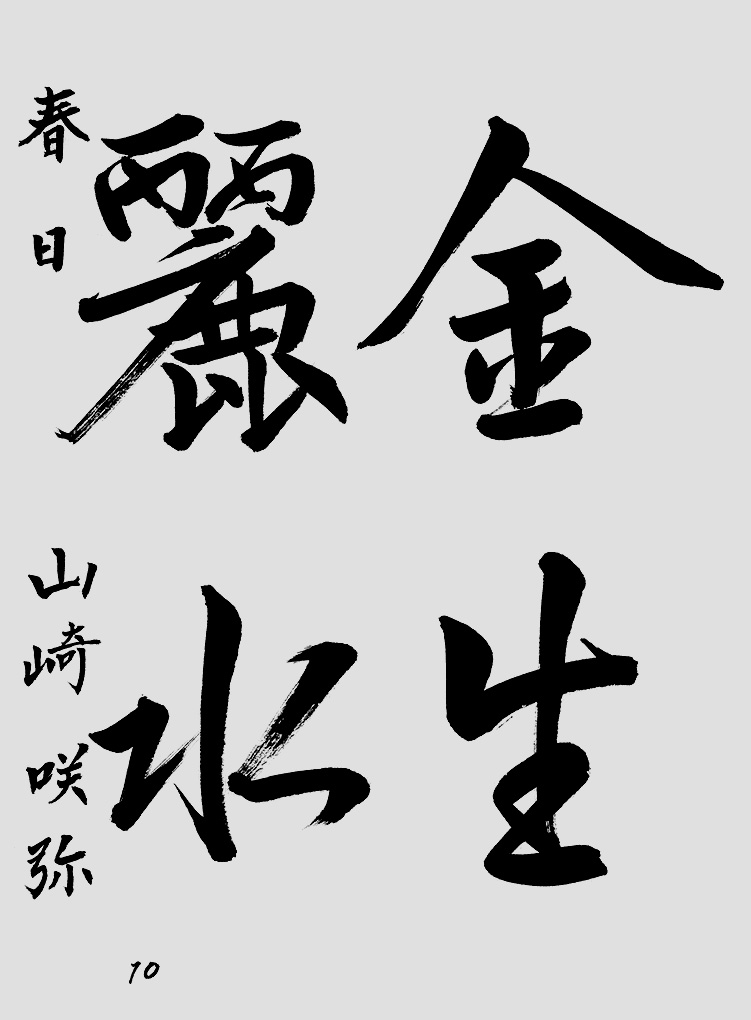 金生
麗水
春日 山崎 咲弥
10